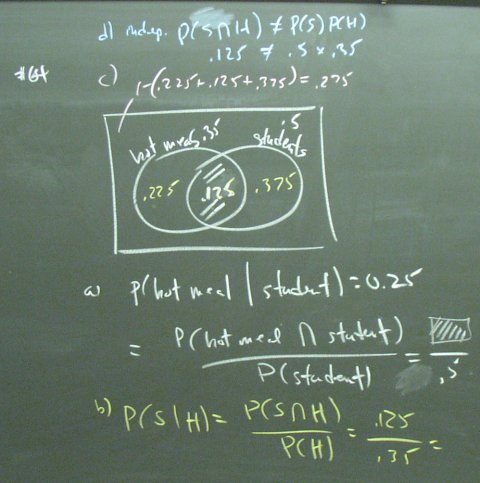 d) indep. P(S∩H) ≠ P(S)P(H)
.125 ≠ .5 x .35
c) 1-(.225+.125+.375)=.275
hot meals .35
.5
students
.225 .125 .375
a) P(hot meal | student) = 0.25
= P(hot meal ∩ student) / P(student) = / .5
b) P(S|H) = P(S∩H) / P(H) = .125 / .35 =